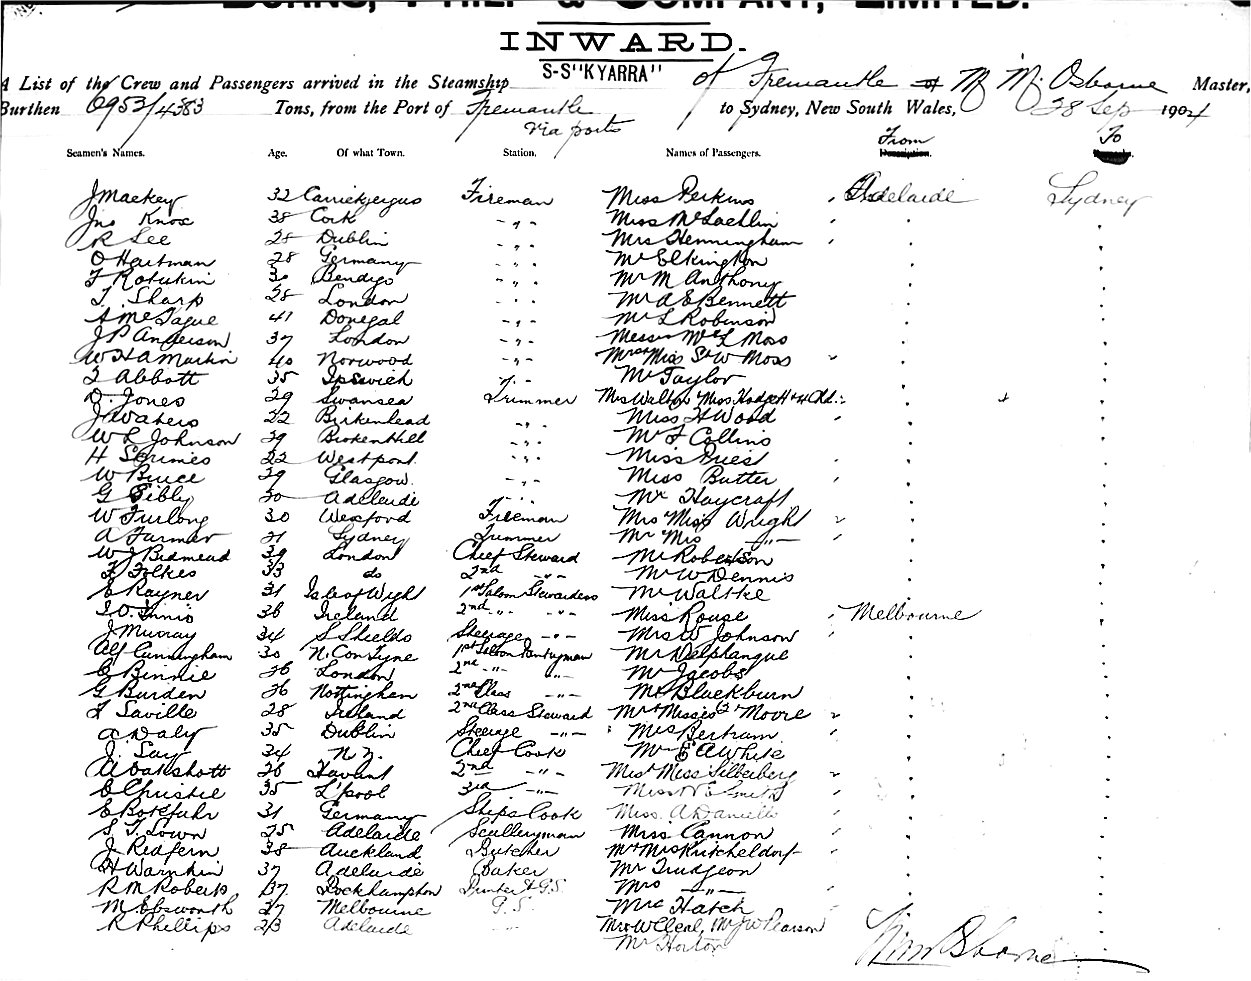 BURNS, PHILP & COMPANY, LIMITED.
INWARD.
S-S "KYARRA"
A List of the Crew and Passengers arrived in the Steamship of Fremantle M. Osborne Master,
Burthen 6953/4383 Tons, from the Port of Fremantle to Sydney, New South Wales, 28 Sep 1904
via ports
Seamen's Names. Age. Of what Town. Station. Names of Passengers. From To
J Mackey 32 Carrickfergus Fireman Miss Perkins Adelaide Sydney
Jno Knox 38 Cork - " - Miss McLachlin
R Lee 28 Dublin - " - Mrs Henningham
O Hartman 28 Germany - " - Mr Elkington
F Rotukin 30 Bendigo - " - Mr M Anthony
T. Sharp 28 London - " - Mr A E Bennett
A McTague 41 Donegal - " - Mr L Robinson
J P Anderson 37 London - " - Messrs W & L Moss
W H A Martin 40 Norwood - " - Mrs & Miss S & W Moss
T Abbott 35 Ipswich - " - Mr Taylor
D. Jones 29 Swansea Trimmer Mrs Walton Miss Hodge H & 4 Chd.
J Waters 22 Birkenhead - " - Miss H Wood
W L Johnson 29 Broken Hill - " - Mr F Collins
H Scrimes 22 Westport - " - Miss Pries
W Bruce 29 Glasgow - " - Miss Butter
G Sibly 20 Adelaide - " - Mr Haycraft
W Furlong 30 Wexford Fireman Mrs & Miss Wright
A Farmer 21 Sydney Trimmer Mr & Mrs - " -
W J Bidmead 39 London Chief Steward Mr Robertson
F Folkes 33 do 2nd - " - Mr W Dennis
E Rayner 31 Isle of Wight 1st Saloon Stewardess Mr Waltke
36 Ireland 2nd - " - - " - Miss Rouse Melbourne
J Murray 34 S Shields Steerage - " - Mrs W Johnson
Alf Cunningham 30 N. Con Tyne 1st Saloon Pantryman Mr Delphangue
E Binnie 26 London 2nd - " - - " - Mr Jacobs
G Burden 26 Nottingham 2nd Class - " - Mr Blackburn
F Saville 28 Ireland 2nd Class Steward Mr & Misses (2) Moore
A Daly 35 Dublin Steerage - " - Mrs Bertram
J. Say 34 N.Z. Chief Cook Mr E A White
A Oakshott 26 Havant 2nd - " - Mrs & Miss Silberberg
E Christie 35 L'pool 3rd - " - Miss N E Smith
E Botefuhr 31 Germany Ships Cook Miss. A Daniells
S. T. Lown 25 Adelaide Sculleryman Miss Cannon
J. Redfern 38 Auckland Butcher Mr & Mrs Kritcheldorf
H Warnkin 37 Adelaide Baker Mr Trudgeon
R M Roberts 37 Rockhampton Printer & G.S. Mrs - " -
M Ebsworth 27 Melbourne G.S. Mrs Hatch
R Phillips 23 Adelaide - " - Mrs W Cleal, Mr J W Pearson
Mr Horton
Osborne